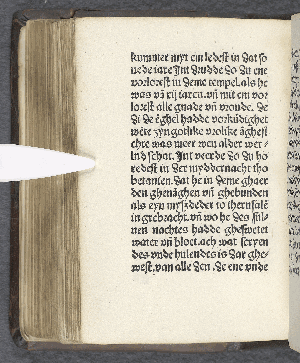 kummer myt em ledest in dat so
uede iare Int drudde do du ene
vorlorest in deme tempel. als he
was vā xij iaren. vñ mit em vor
lorest alle gnade vñ vroude. de
di de ēghel hadde vorkūdighet
wēre syn gotlike vrolike āghesi
chte was meer wen alder wer-
ld schat. Int veerde do du ho
redest in der myddernacht tho
bethanien. dat he in deme ghaer
den ghenāghen vñ ghebunden
als eyn myszdeder to iherusalē
in grebracht. vñ wo he des sul-
uen nachtes hadde ghesswetet
water vñ bloet. ach wat scryen
des vnde hulendes is dar ghe-
west. van alle den. de ene vnde